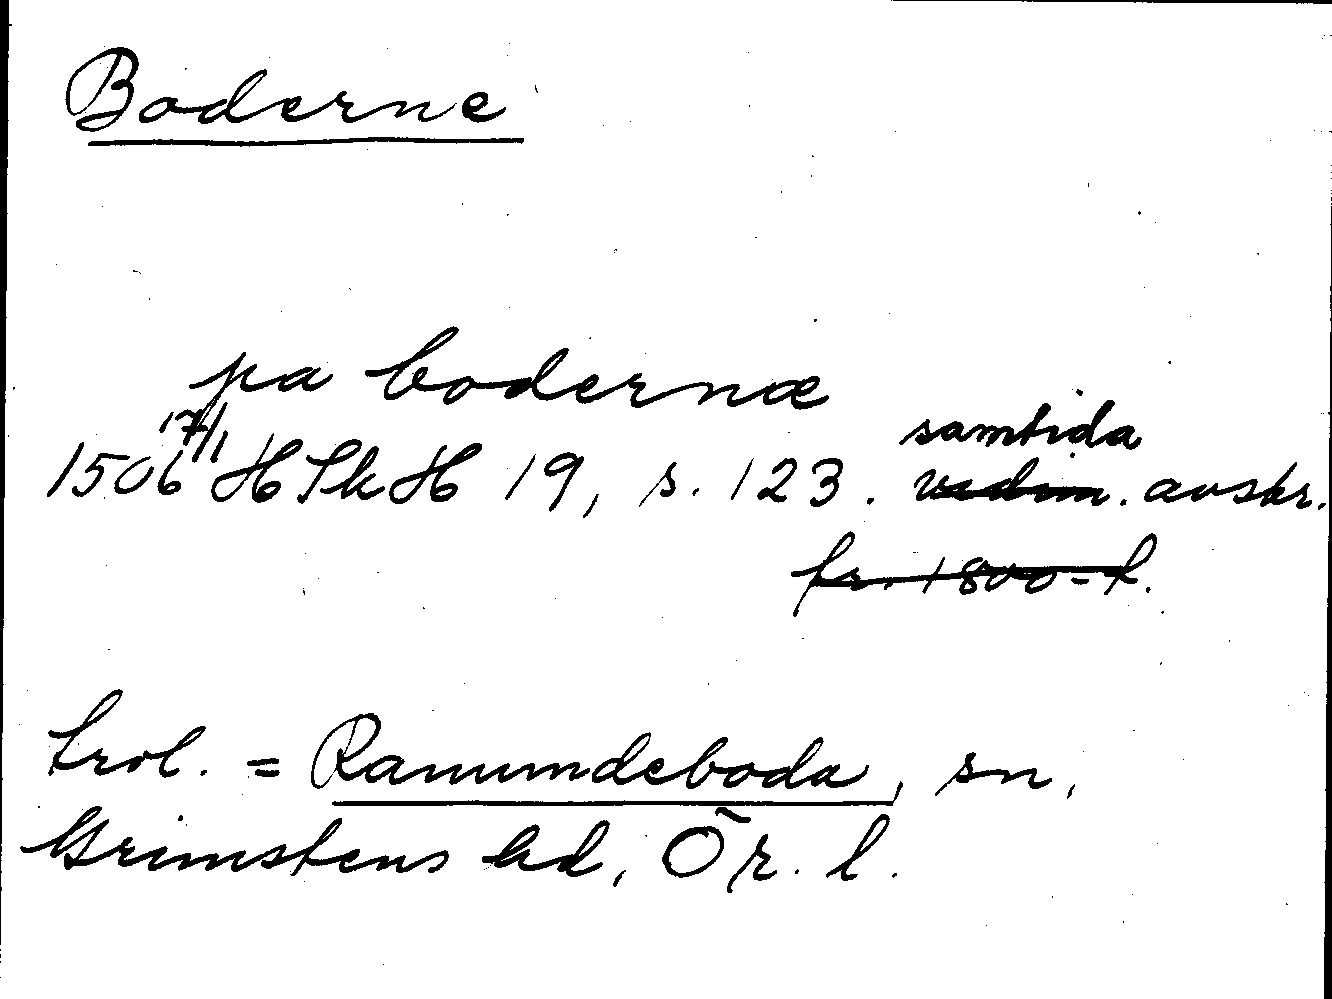 Boderne
pa bodernæ
1506 17/1 HSkH 19, s. 123. samtida vidim. avskr.
fr. 1800-t.
trol. = Ramundeboda, sn,
Grimstens hd, Ör. l.